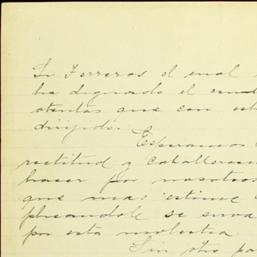 Sr Ferreras el cual
ha dignado el
atentas que con
dirijido.
Esperamos
rectitud y caballeros
hacer por nosotros
que mas estime
plicandole se
por esta molestia
Sin otro pa